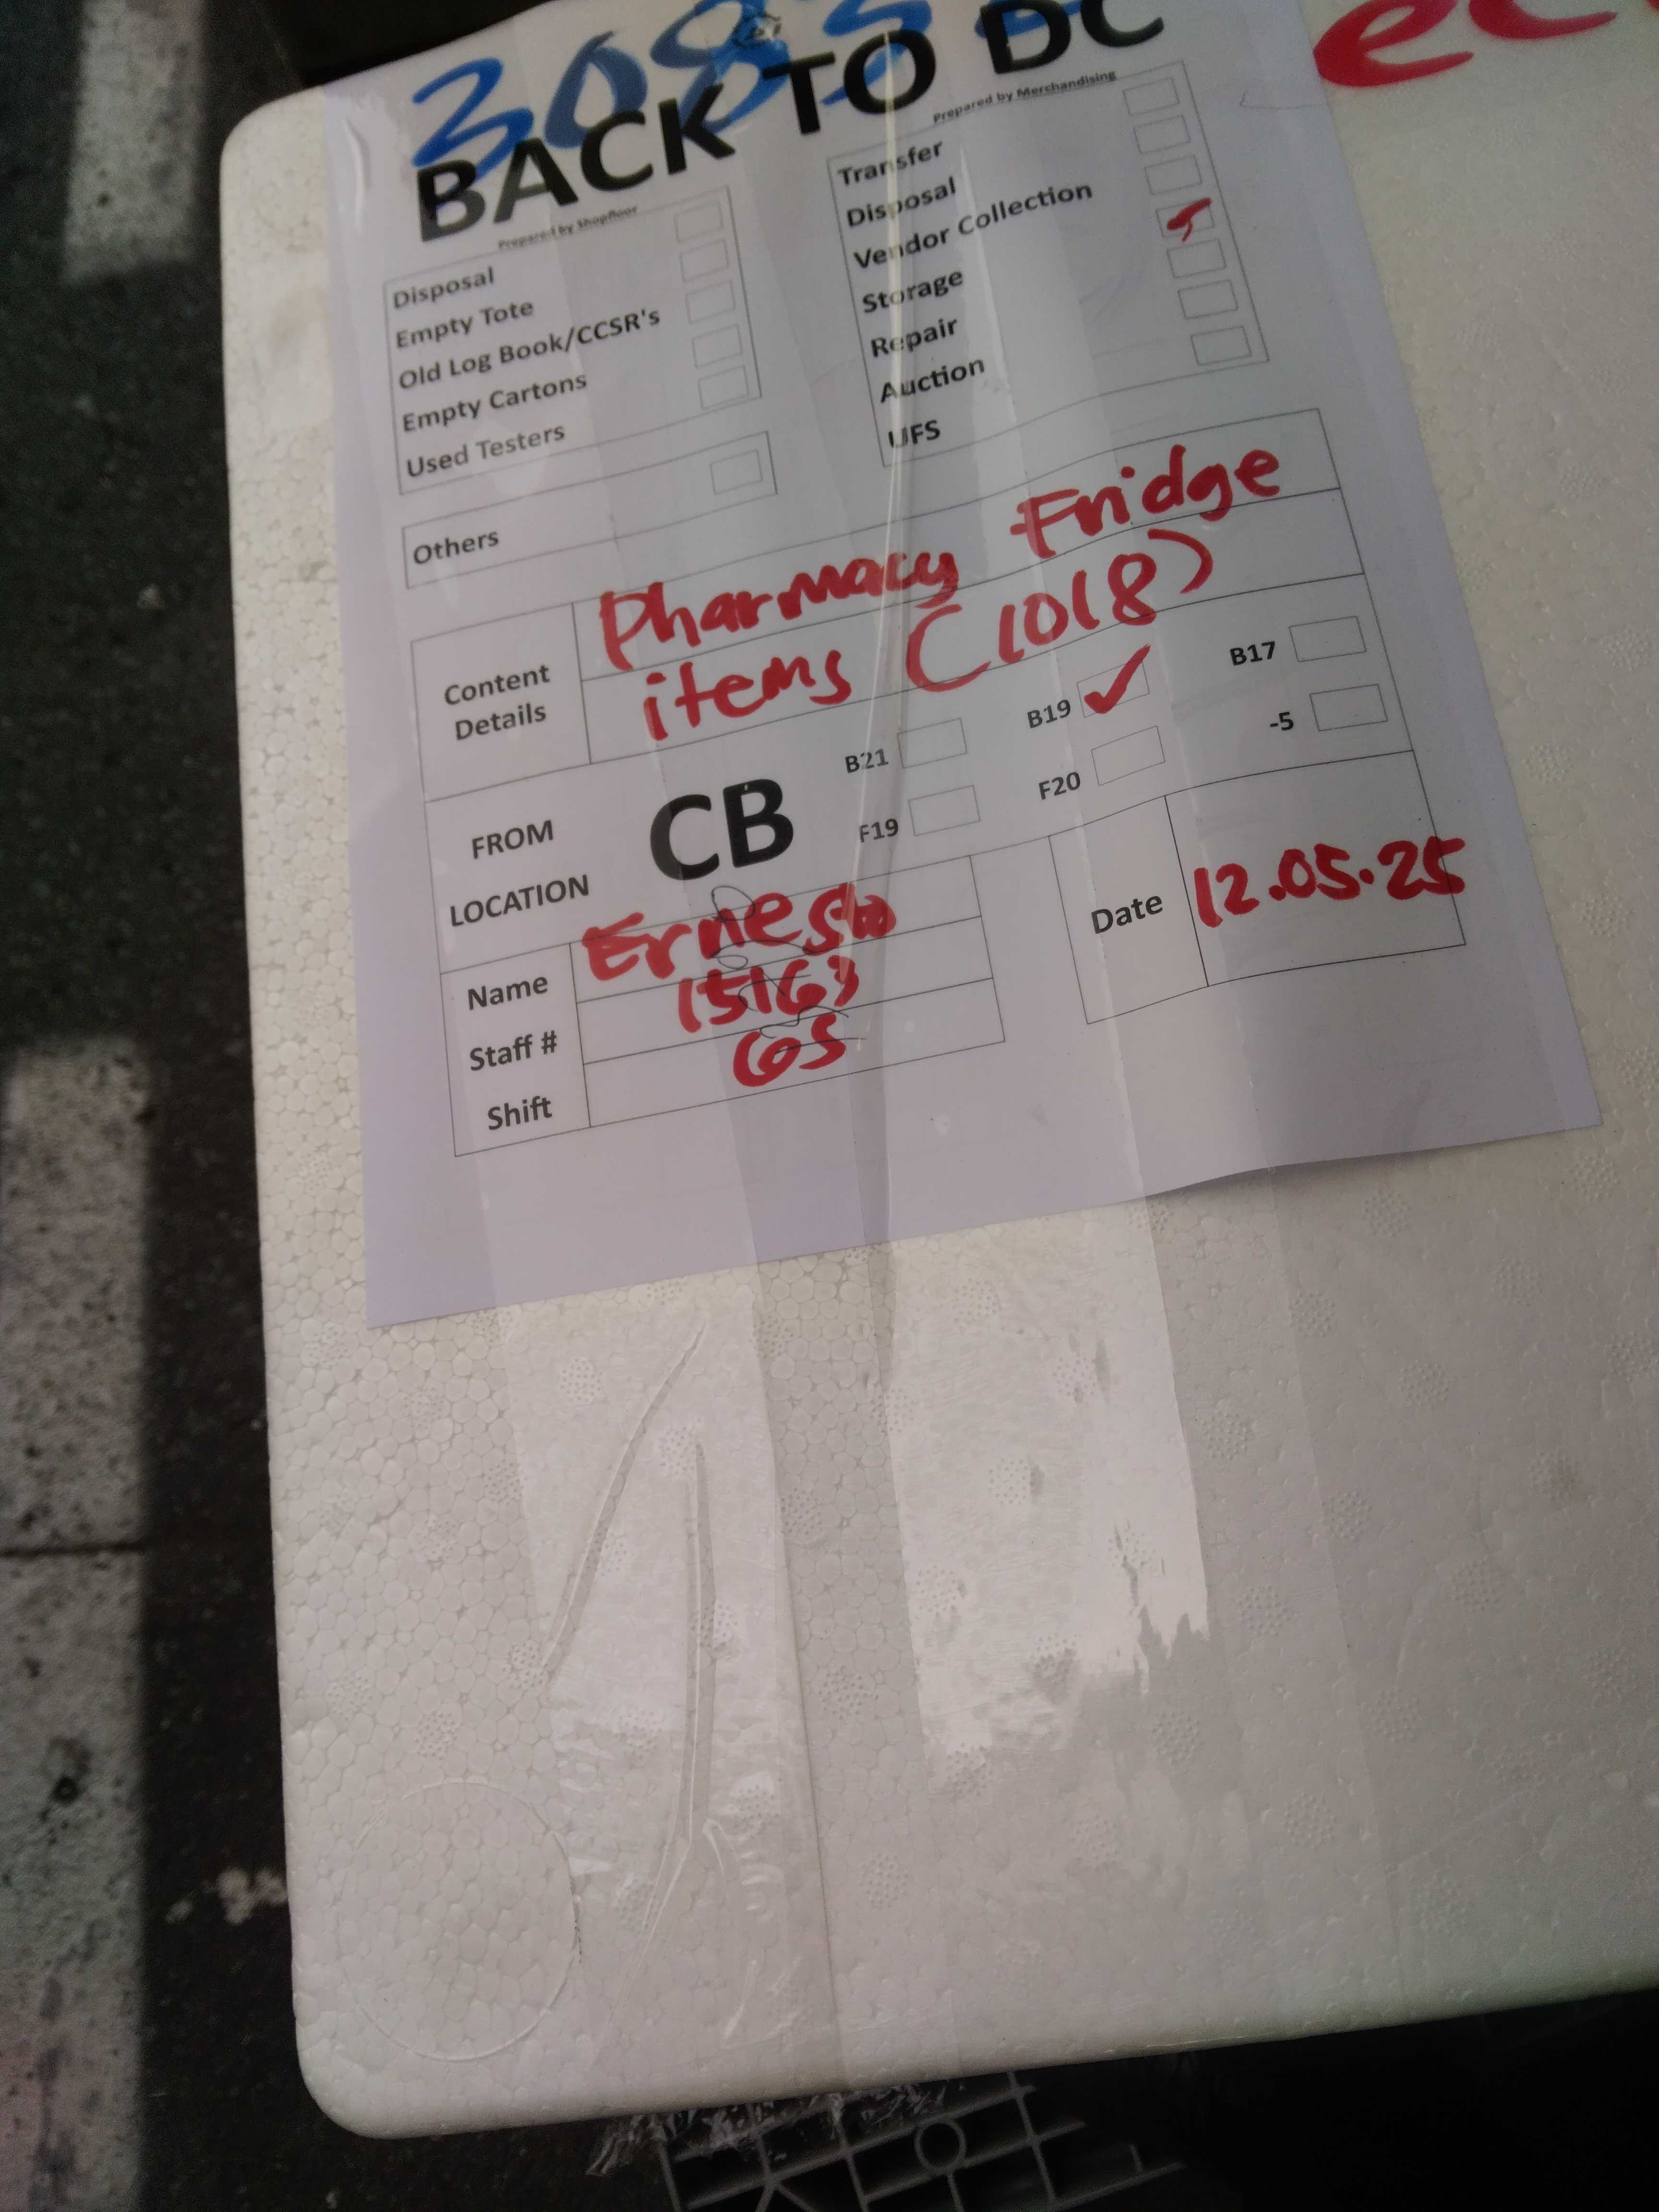 BACK TO DC
Prepared by Shopfloor
Disposal
Empty Tote
Old Log Book/CCSR's
Empty Cartons
Used Testers
Others
Prepared by Merchandising
Transfer
Disposal
Vendor Collection
Storage
Repair
Auction
UFS
Content Details
Pharmacy Fridge
items (1018)
FROM LOCATION
CB
B21
B19
B17
F19
F20
-5
Name Ernesto
Staff # 15163
Shift
Date 12.05.25